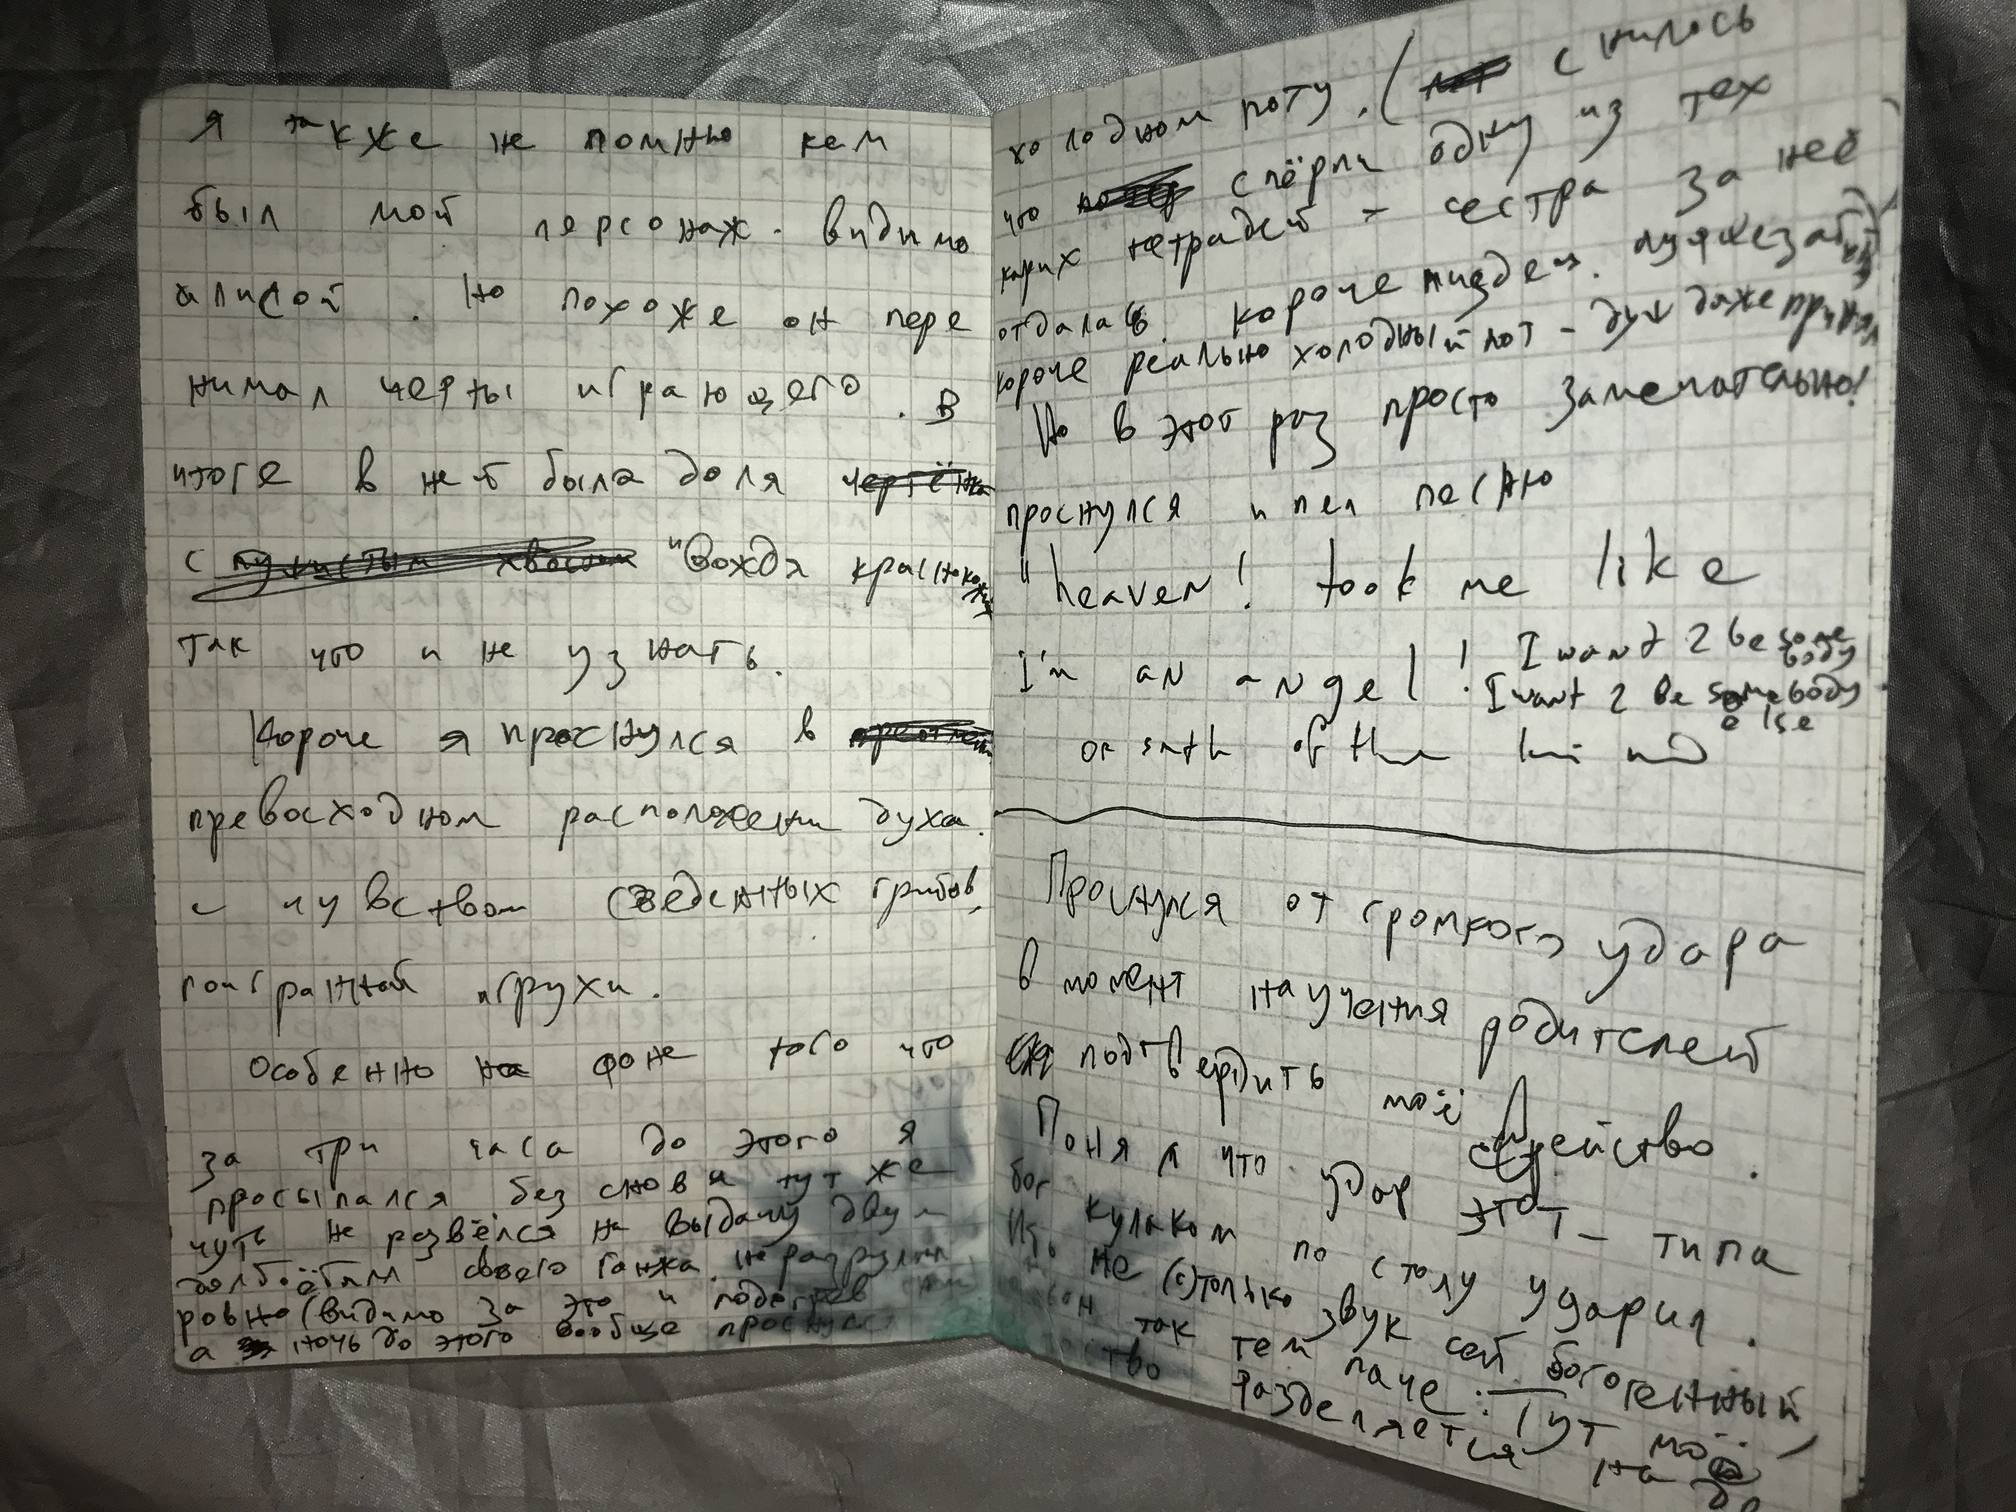 Я также не помню кем
был мой персонаж. видимо
алисой. Но похоже он пере
нимал черты играющего. В
итоге в ней была доля чертёнка
с пушистым хвостом "Вождя краснокожих
так что и не узнать.
Короче я проснулся в
превосходном расположении духа.
с чувством съеденных грибов,
поигранной игрухи.
Особенно на фоне того что
за три часа до этого я
просыпался без снов я тут же
чуть не развёлся на выдачу двум
долбоёбам своего ганжа. не разрулил
ровно (видимо за это и подогрев
а ночь до этого вообще проснулся
холодном поту. ( снилось
что спёрли одну из тех
тетрадей - сестра за неё
отдалась. короче пиздец.
короче реально холодный пот - душ даже принял
Но в этот раз просто замечательно!
проснулся и пел песню
"heaven! took me like
I'm an angel! I want 2 be somebody
I want 2 be somebody else
or smth of the kind
Проснулся от громкого удара
в момент научения родителей
подтвердить моё
действо.
Понял что удар этот - типа
бог кулаком по столу ударил.
не (с)только звук сей богогенный,
так тем паче: Тут моё
разделяется на